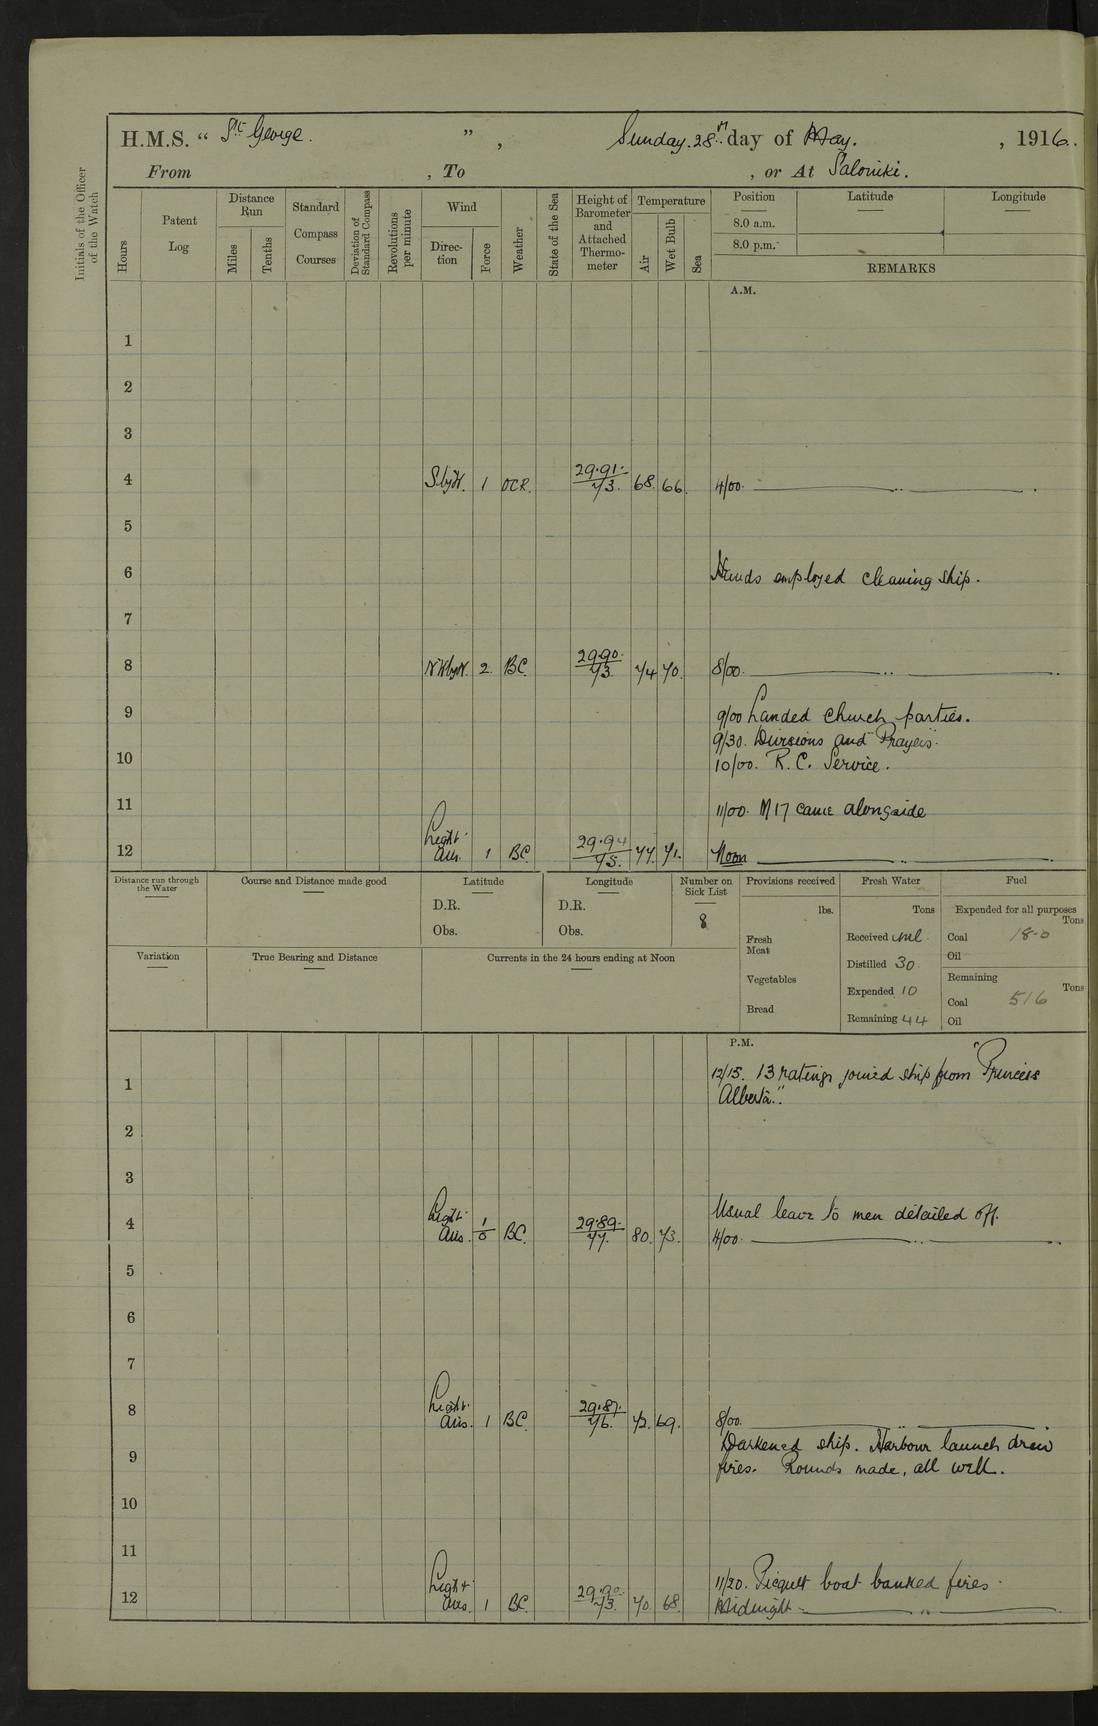 H.M.S. “ St George. ”, Sunday. 28th day of May. , 1916.
From , To , or At Saloniki.
Initials of the Officer
of the Watch
Hours
Patent
Log
Distance
Run
Miles
Tenths
Standard
Compass
Courses
Deviation of
Standard Compass
Revolutions
per minute
Wind
Direc-
tion
Force
Weather
State of the Sea
Height of
Barometer
and
Attached
Thermo-
meter
Temperature
Air
Wet Bulb
Sea
Position
Latitude
Longitude
8.0 a.m.
8.0 p.m.
REMARKS
A.M.
1
2
3
4 S by W. 1 OCR. 29.91. 73. 68. 66. 4/00.
5
6 Hands employed cleaning ship.
7
8 NW by W. 2 BC. 29.90. 73. 74 70. 8/00.
9 9/00 Landed church parties.
9/30. Divisions and Prayers.
10 10/00. R.C. Service.
11 11/00. M17 came alongside
12 Light Airs. 1 BC. 29.94 75. 77. 71. Noon
Distance run through
the Water
Course and Distance made good
Latitude
D.R.
Obs.
Longitude
D.R.
Obs.
Number on
Sick List
8
Provisions received
lbs.
Fresh
Meat
Vegetables
Bread
Fresh Water
Tons
Received nil
Distilled 30
Expended 10
Remaining 44
Fuel
Expended for all purposes
Tons
Coal 18-0
Oil
Remaining
Tons
Coal 516
Oil
Variation
True Bearing and Distance
Currents in the 24 hours ending at Noon
P.M.
1 12/15. 13 ratings joined ship from "Princess
Alberta".
2
3
Usual leave to men detailed off.
4 Light Airs. 1/0 BC. 29.89. 77. 80. 73. 4/00.
5
6
7
8 Light Airs. 1 BC. 29.87. 76. 72. 69. 8/00.
Darkened ship. Harbour launch drew
9 fires. Rounds made, all well.
10
11
11/20. Picquet boat banked fires.
12 Light Airs. 1 BC. 29.90. 73. 70 68. Midnight